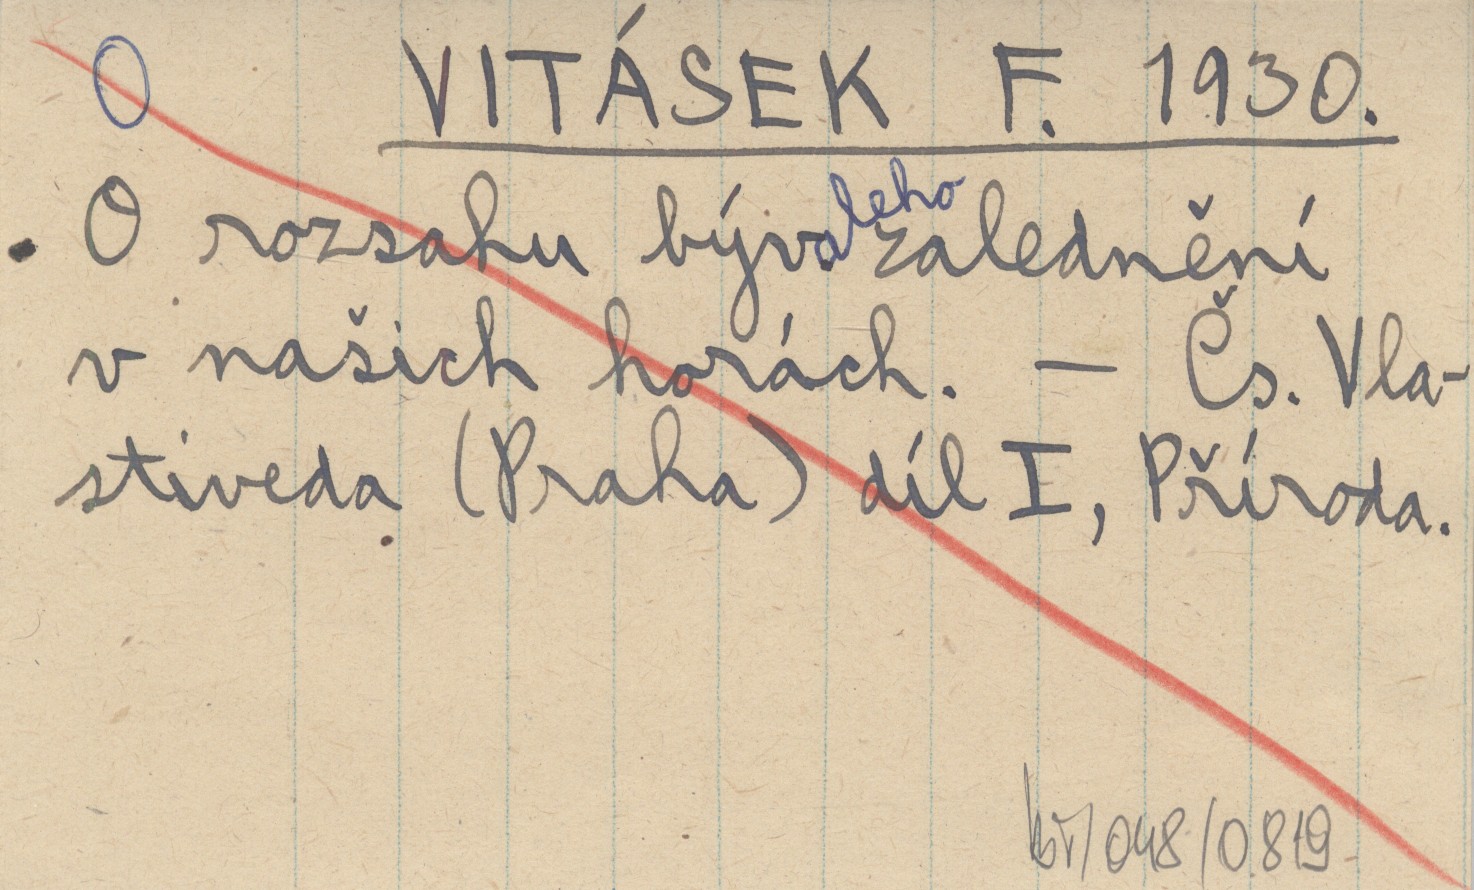 O VITÁSEK F. 1930.
O rozsahu bývaleho zalednění
v našich horách. — Čs. Vla-
stiveda (Praha) díl I, Příroda.
/048/0819